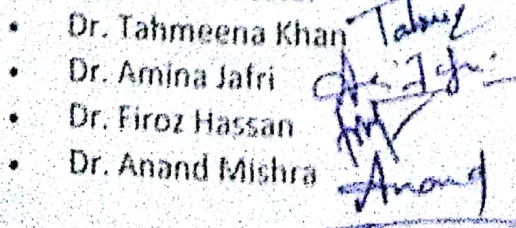 • Dr. Tahmeena Khan
• Dr. Amina Jafri
• Dr. Firoz Hassan
• Dr. Anand Mishra Anand